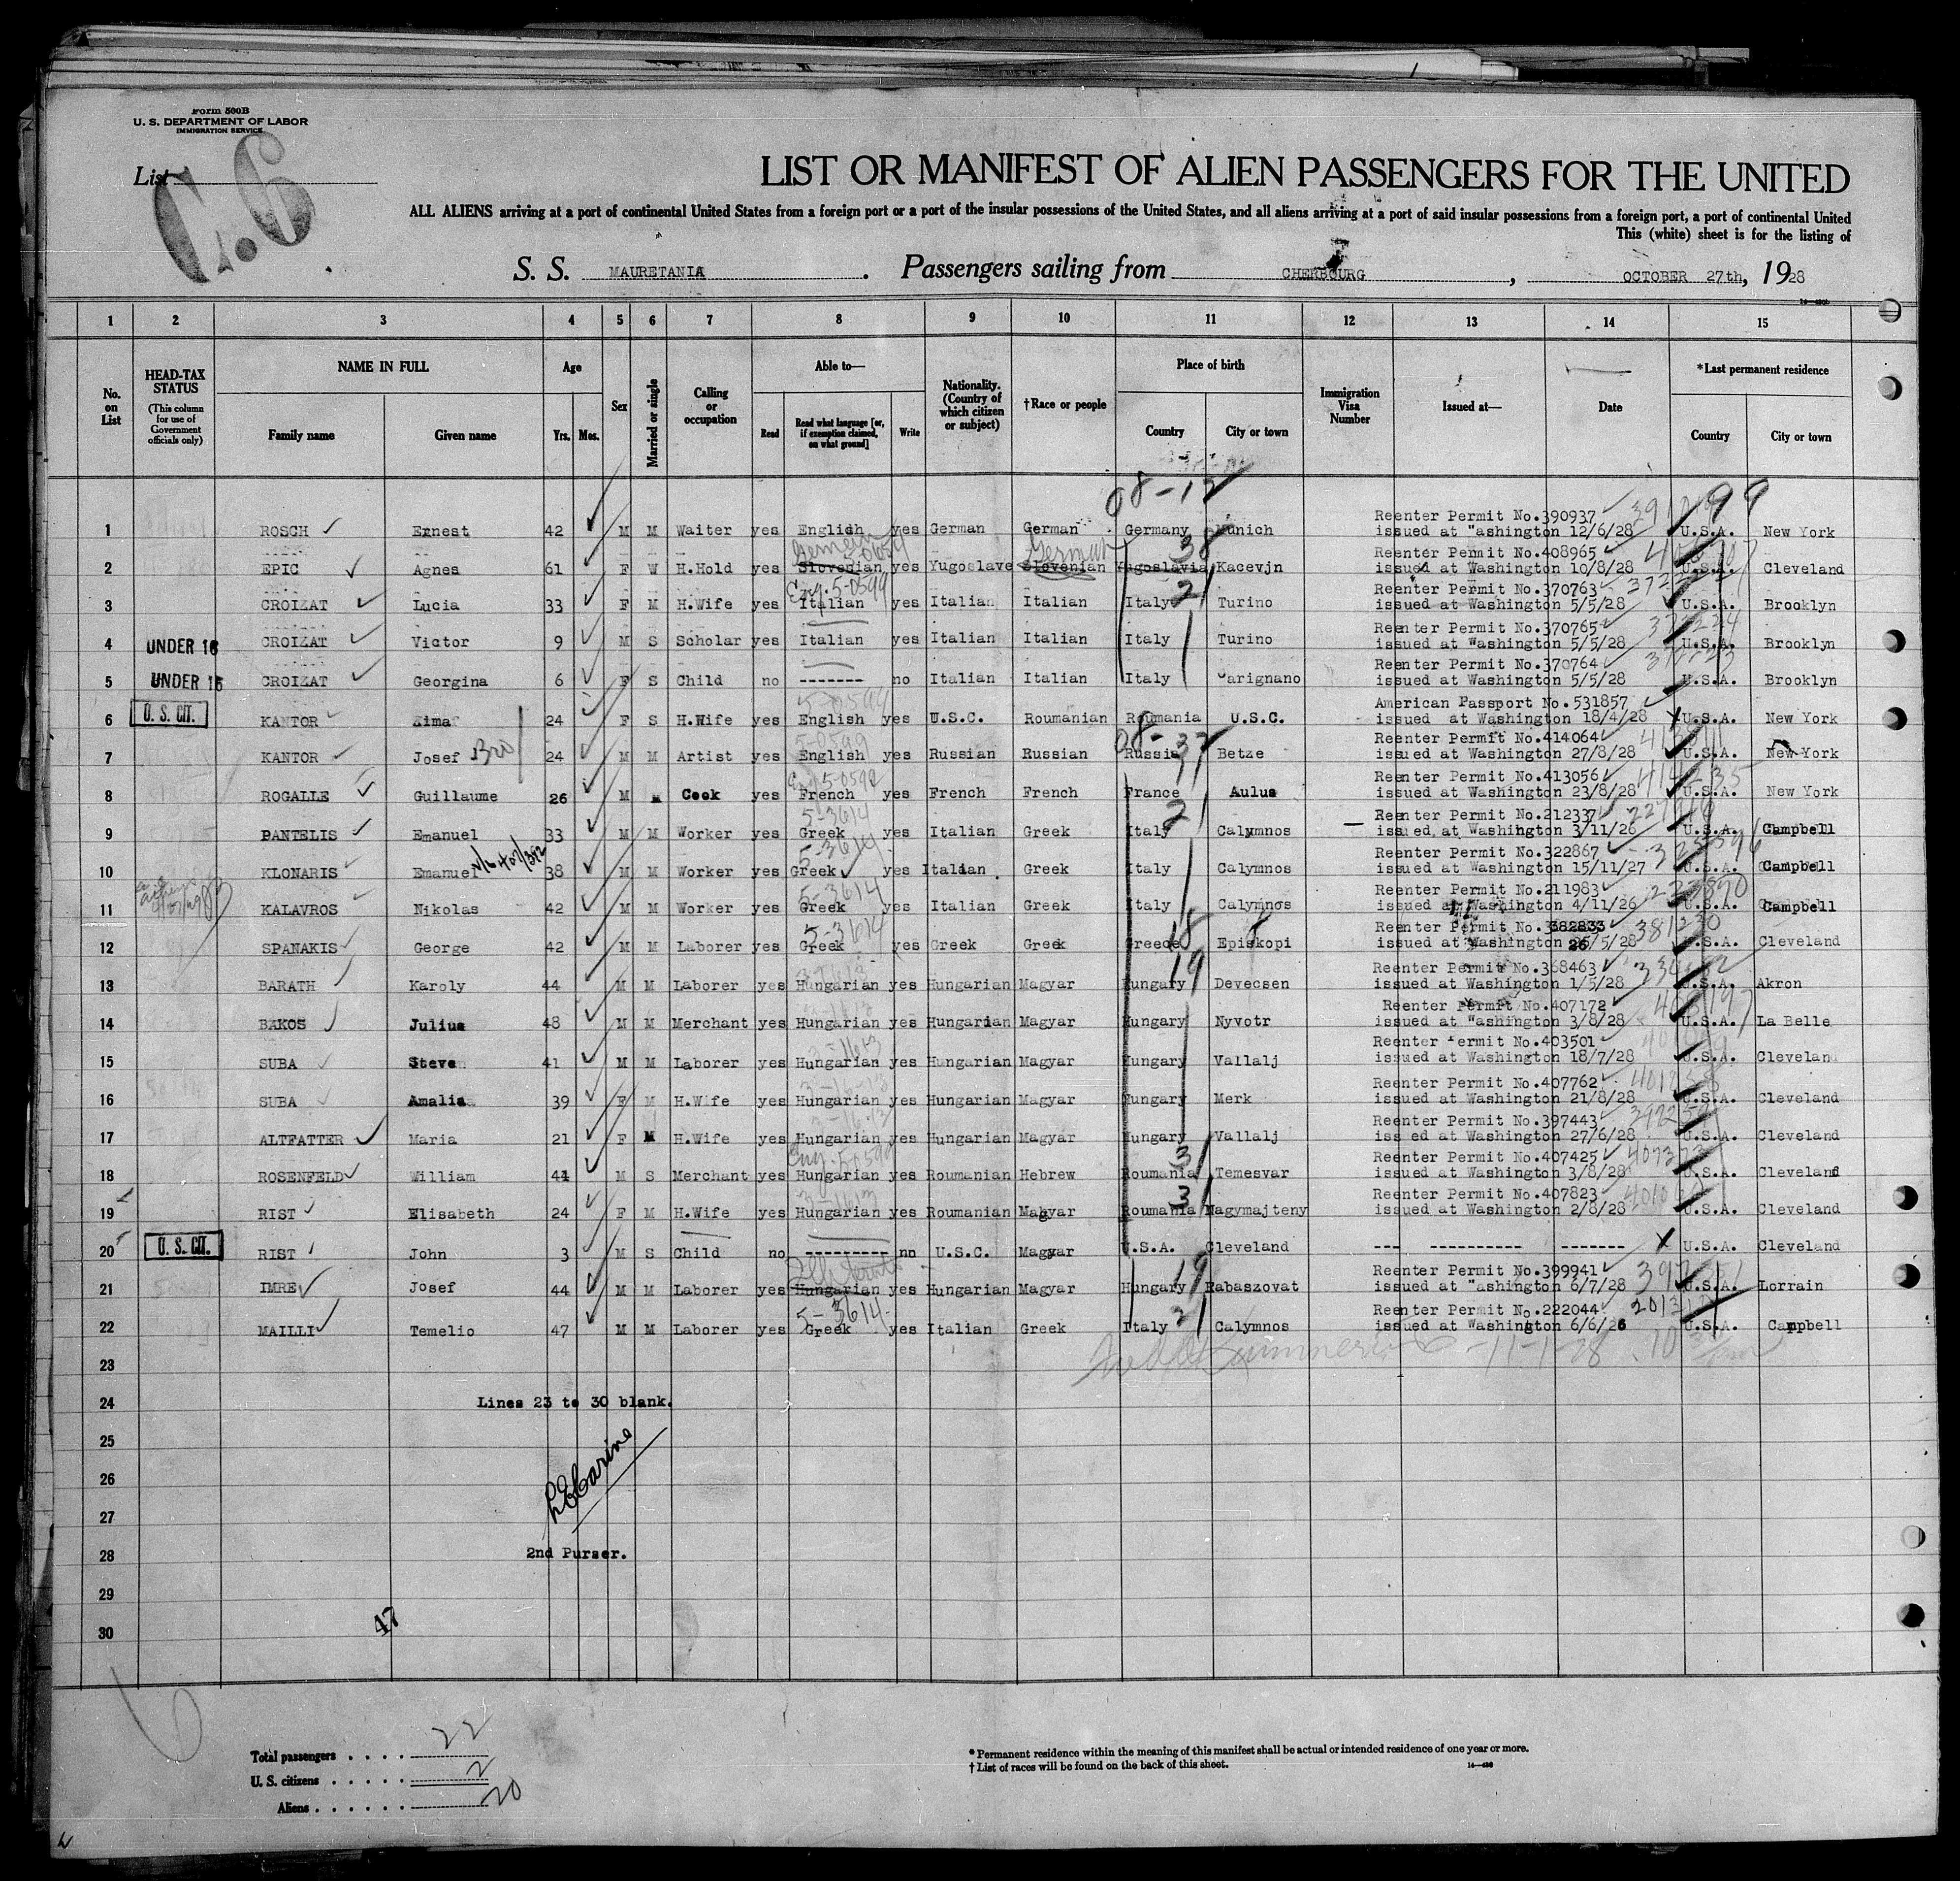 Form 500B
U. S. DEPARTMENT OF LABOR
IMMIGRATION SERVICE
List
C.6
LIST OR MANIFEST OF ALIEN PASSENGERS FOR THE UNITED
ALL ALIENS arriving at a port of continental United States from a foreign port or a port of the insular possessions of the United States, and all aliens arriving at a port of said insular possessions from a foreign port, a port of continental United
This (white) sheet is for the listing of
S. S. MAURETANIA. Passengers sailing from CHERBOURG, OCTOBER 27th, 1928
1 2 3 4 5 6 7 8 9 10 11 12 13 14 15
No. on List HEAD-TAX STATUS (This column for use of Government officials only) NAME IN FULL Family name Given name Age Yrs. Mos. Sex Married or single Calling or occupation Able to— Read Read what language [or, if exemption claimed, on what ground] Write Nationality. (Country of which citizen or subject) †Race or people Place of birth Country City or town Immigration Visa Number Issued at— Date *Last permanent residence Country City or town
08-12
Reenter Permit No.390937
1 ROSCH Ernest 42 M M Waiter yes English yes German German Germany Munich issued at "ashington 12/6/28 U.S.A. New York
Reenter Permit No.408965
2 EPIC Agnes 61 F W H.Hold yes Slovenian yes Yugoslave Slovenian Yugoslavia Kacevjn issued at Washington 10/8/28 U.S.A. Cleveland
Eng. 5-0599 Reenter Permit No.370763
3 CROIZAT Lucia 33 F M H.Wife yes Italian yes Italian Italian Italy Turino issued at Washington 5/5/28 U.S.A. Brooklyn
Reenter Permit No.370765
4 UNDER 16 CROIZAT Victor 9 M S Scholar yes Italian yes Italian Italian Italy Turino issued at Washington 5/5/28 U.S.A. Brooklyn
Reenter Permit No.370764
5 UNDER 16 CROIZAT Georgina 6 F S Child no ------- no Italian Italian Italy Carignano issued at Washington 5/5/28 U.S.A. Brooklyn
5-0599 American Passport No.531857
6 U. S. CIT. KANTOR 24 F S H.Wife yes English yes U.S.C. Roumanian Roumania U.S.C. issued at Washington 18/4/28 U.S.A. New York
5-0599 Reenter Permit No.414064
7 KANTOR Josef 24 M M Artist yes English yes Russian Russian Russia Betze issued at Washington 27/8/28 U.S.A. New York
Reenter Permit No.413056
8 ROGALLE Guillaume 26 M M Cook yes French yes French French France Aulus issued at Washington 23/8/28 U.S.A. New York
5-3614 Reenter Permit No.212337
9 PANTELIS Emanuel 33 M M Worker yes Greek yes Italian Greek Italy Calymnos issued at Washington 3/11/26 U.S.A. Campbell
5-3614 Reenter Permit No.322867
10 KLONARIS Emanuel 38 M M Worker yes Greek yes Italian Greek Italy Calymnos issued at Washington 15/11/27 U.S.A. Campbell
5-3614 Reenter Permit No.211983
11 KALAVROS Nikolas 42 M M Worker yes Greek yes Italian Greek Italy Calymnos issued at Washington 4/11/26 U.S.A. Campbell
5-3614 Reenter Permit No.382833
12 SPANAKIS George 42 M M Laborer yes Greek yes Greek Greek Greece Episkopi issued at Washington 26/5/28 U.S.A. Cleveland
Reenter Permit No.368463
13 BARATH Karoly 44 M M Laborer yes Hungarian yes Hungarian Magyar Hungary Devecsen issued at Washington 1/5/28 U.S.A. Akron
Reenter Permit No.407172
14 BAKOS Julius 48 M M Merchant yes Hungarian yes Hungarian Magyar Hungary Nyvotr issued at "ashington 3/8/28 U.S.A. La Belle
Reenter Permit No.403501
15 SUBA Steve 41 M M Laborer yes Hungarian yes Hungarian Magyar Hungary Vallalj issued at Washington 18/7/28 U.S.A. Cleveland
Reenter Permit No.407762
16 SUBA Amalia 39 F M H.Wife yes Hungarian yes Hungarian Magyar Hungary Merk issued at Washington 21/8/28 U.S.A. Cleveland
Reenter Permit No.397443
17 ALTFATTER Maria 21 F M H.Wife yes Hungarian yes Hungarian Magyar Hungary Vallalj iss ed at Washington 27/6/28 U.S.A. Cleveland
Eng. 5-0599 Reenter Permit No.407425
18 ROSENFELD William 44 M S Merchant yes Hungarian yes Roumanian Hebrew Roumania Temesvar issued at Washington 3/8/28 U.S.A. Cleveland
Reenter Permit No.407823
19 RIST Elisabeth 24 F M H.Wife yes Hungarian yes Roumanian Magyar Roumania Nagymajteny issued at Washington 2/8/28 U.S.A. Cleveland
20 U. S. CIT. RIST John 3 M S Child no --------- no U.S.C. Magyar U.S.A. Cleveland --- ---------- ------- U.S.A. Cleveland
Reenter Permit No.399941
21 IMRE Josef 44 M M Laborer yes Hungarian yes Hungarian Magyar Hungary Rabaszovat issued at "ashington 6/7/28 U.S.A. Lorrain
5-3614 Reenter Permit No.222044
22 MAILLI Temelio 47 M M Laborer yes Greek yes Italian Greek Italy Calymnos issued at Washington 6/6/26 U.S.A. Campbell
23
24 Lines 23 to 30 blank.
25
26
27
28 2nd Purser.
29
30
47
Total passengers . . . . 22
U. S. citizens . . . . . 2
Aliens . . . . . . 20
* Permanent residence within the meaning of this manifest shall be actual or intended residence of one year or more.
† List of races will be found on the back of this sheet.